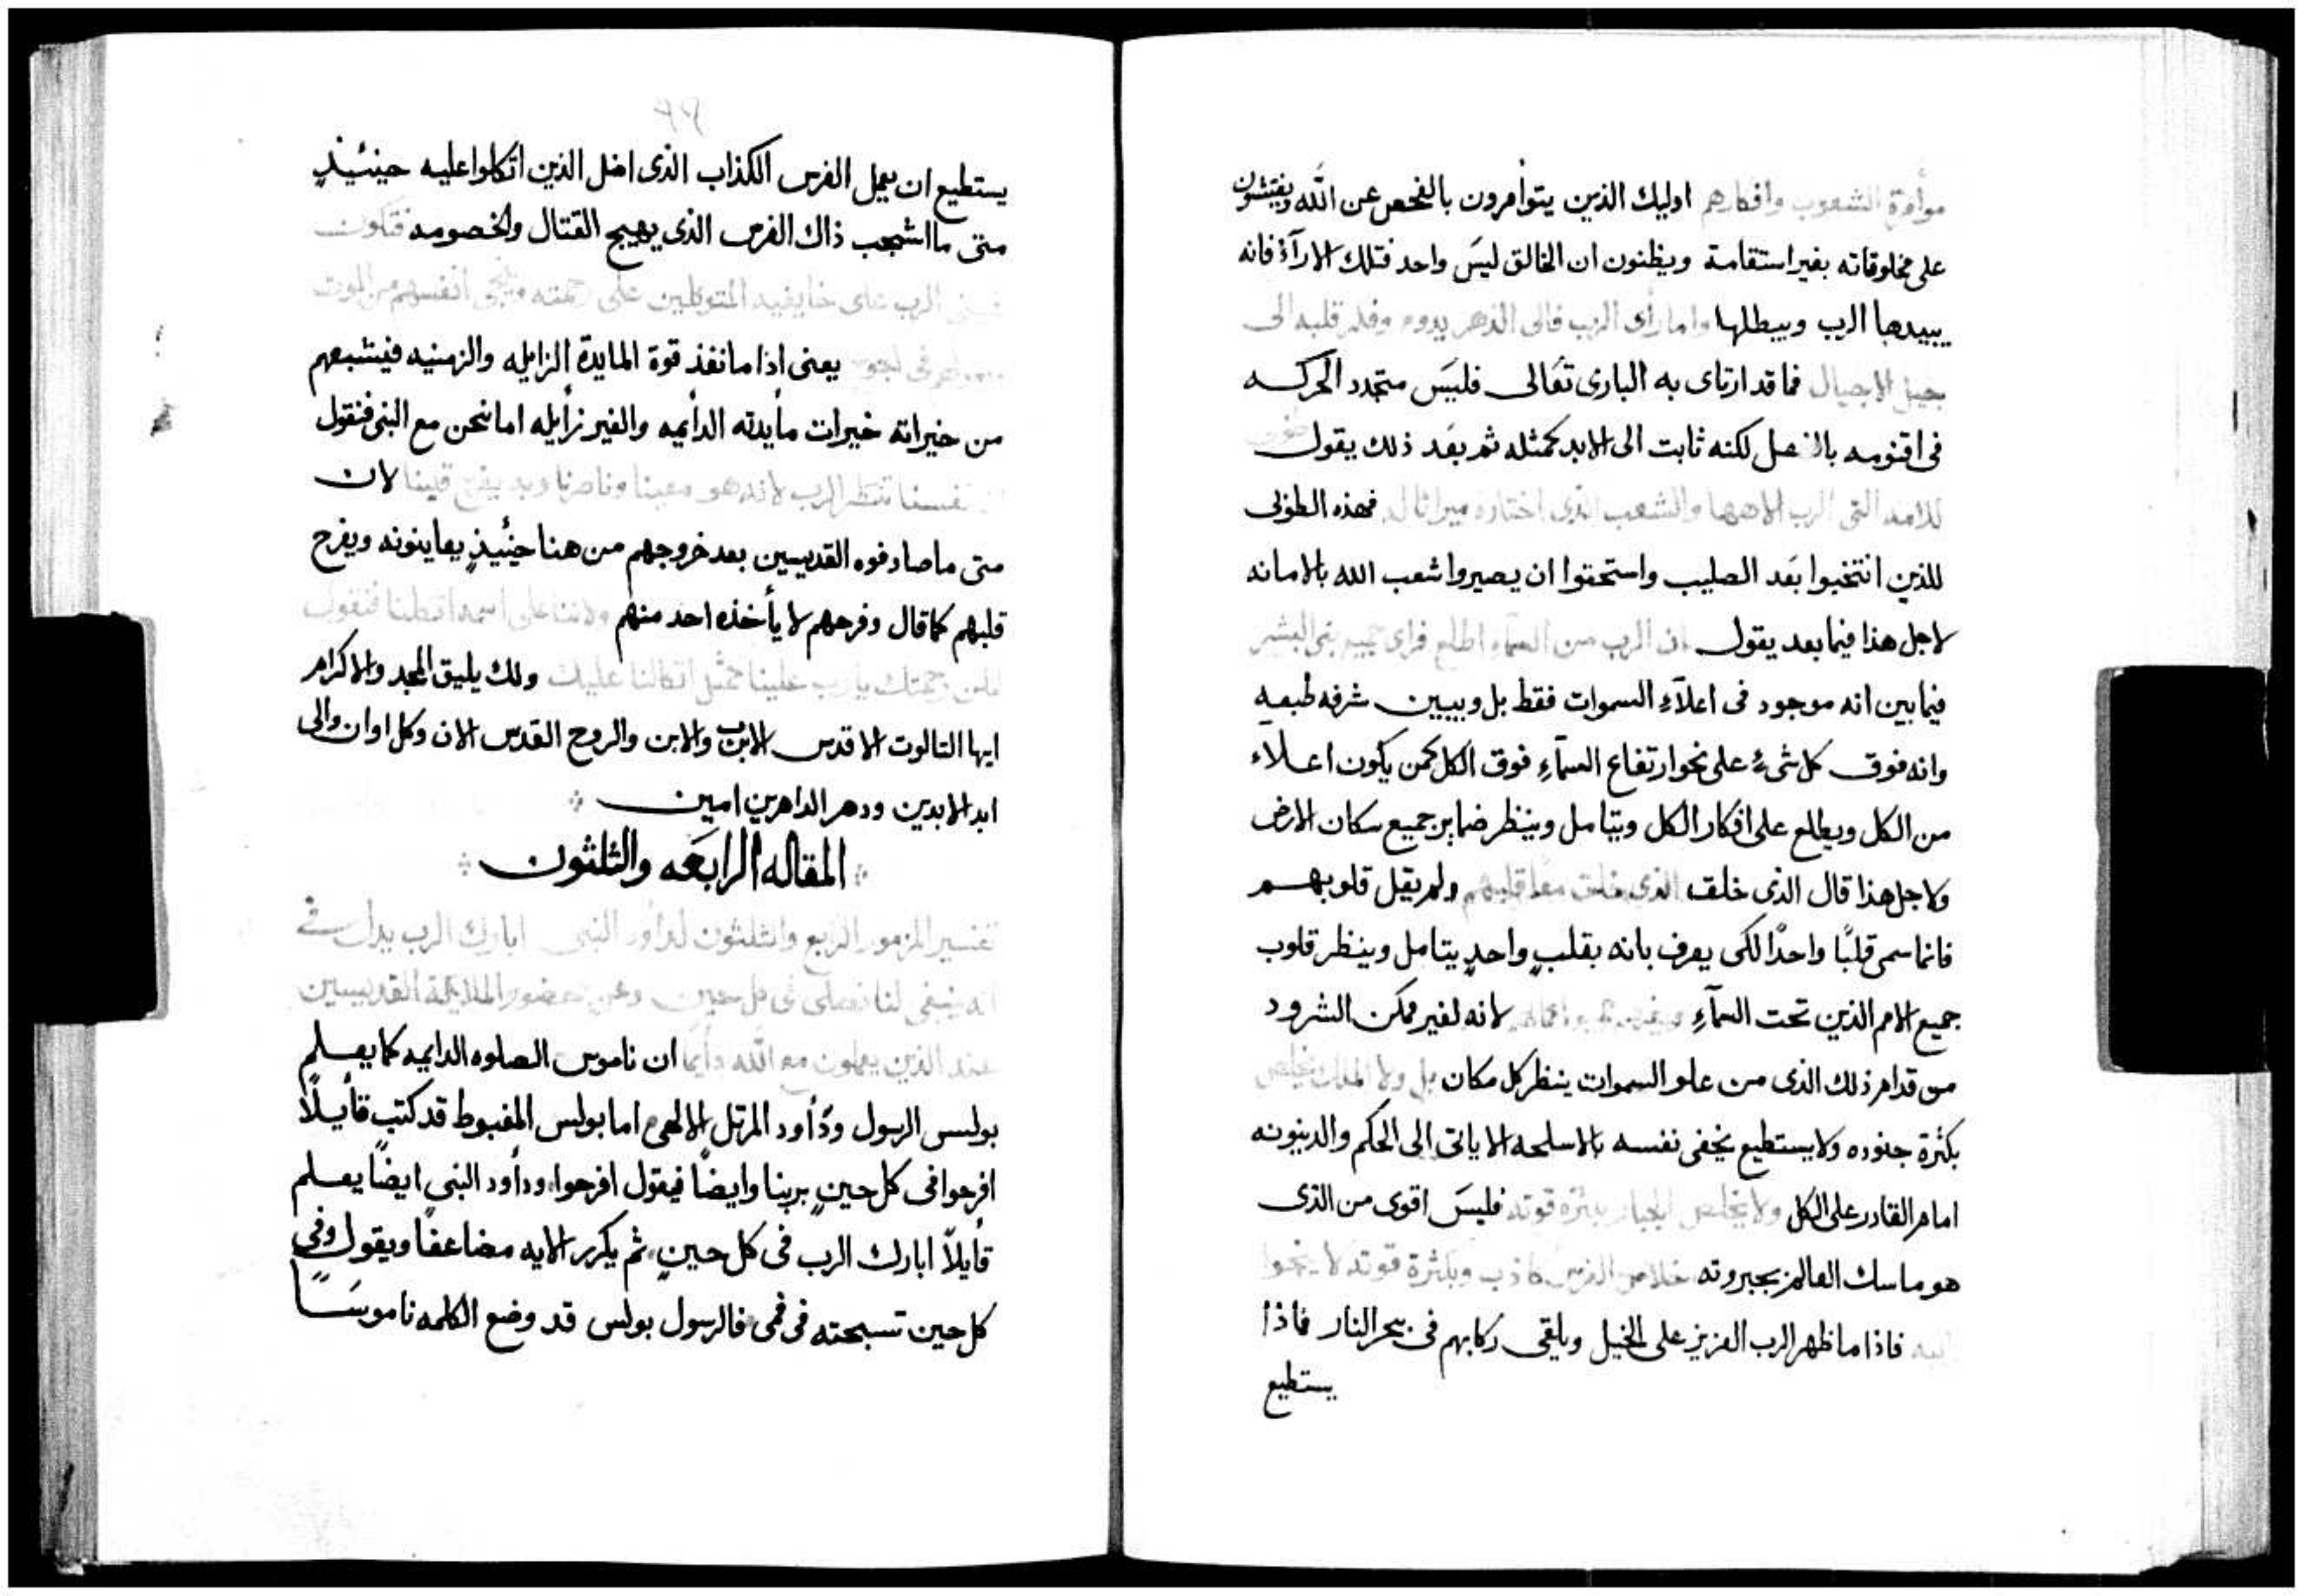 موأمرة الشعوب وافكارهم اوليك الذين يتوأمرون بالفحص عن الله ويفتشون
على مخلوقاته بغير استقامة ويظنون ان الخالق ليسَ واحد فتلك الارآءُ فانه
يبيدها الرب ويبطلها واما رأى الرب فالى الدهر يدوم وفكر قلبه الى
جيل الاجيال فما قد ارتاى به البارى تعَالى فليسَ متجدد الحركه
فى اقنومه بالفعل لكنه ثابت الى الابد كمثله ثم بعَد ذلك يقول
للامه التى الرب الاهها والشعب الذى اختاره ميراثا له فهذه الطوبى
للذين انتخبوا بعَد الصليب واستحقوا ان يصيروا شعب الله بالامانه
لاجل هذا فيما بعد يقول ان الرب من السمآءِ اطلع فراى جميع بنى البشر
فيما بين انه موجود فى اعلآءِ السموات فقط بل ويبيين شرفه طبعيه
وانه فوق كل شىءٍ على نحو ارتفاع السمآءِ فوق الكل كمن يكون اعلاء
من الكل ويطلع على افكار الكل ويتامل وينظر ضماير جميع سكان الارض
ولاجل هذا قال الذى خلق الذى خلق معًا قلبهم ولم يقل قلوبهم
فانما سمى قلبًا واحدًا لكى يعرف بانه بقلبٍ واحدٍ يتامل وينظر قلوب
جميع الامم الذين تحت السمآءِ لانه لغير ممكن الشرود
من قدام ذلك الذى من علو السموات ينظر كل مكان بل ولا الملك يخلص
بكثرة جنوده ولا يستطيع يخفى نفسه بالاسلحه الا ياتى الى الحكم والدينونه
امام القادر على الكل ولا يخلص الجبار بكثرة قوته فليسَ اقوى من الذى
هو ماسك العالم بجبروته خلاص الفرس كاذب وبكثرة قوته لا ينجوا
فاذا ما ظهر الرب العزيز على الخيل ويلقى ركابهم فى بحر النار فماذا
يستطيع
يستطيع ان يعمل الفرس الكذاب الذى اضل الذين اتكلوا عليه حينئيذٍ
متى ما اشجب ذاك الفرس الذى يهيج القتال والخصومه فتكون
الرب على خايفيه المتوكلين على رحمته وينجى انفسهم من الموت
يعنى اذا ما نفذ قوة المايدة الزايله والزمنيه فيشبعهم
من خيراته خيرات مأيدته الدأيميه والغير زأيله اما نحن مع النبى فنقول
نفسنا تنتظر الرب لانه هو معينا وناصرنا وبه يفرح قلبنا لان
متى ما صادفوه القديسين بعد خروجهم من هنا حينئيذٍ يعاينونه ويفرح
قلبهم كما قال وفرحهم لا يأخذه احد منهم ولاننا على اسمه اتكلنا فنقول
فلتكن رحمتك يارب علينا كمثل اتكالنا عليك ولك يليق المجد والاكرام
ايها التالوت الاقدس الاب والابن والروح القدس الان وكل اوان والى
ابد الابدين ودهر الداهرين امين
المقاله الرابعَه والثلثون
تفسير المزمور الرابع والثلثون لدأود النبى ابارك الرب يدل فى
انه ينبغى لنا نصلى فى كل حين وعن حضور الملايكة القديسين
عند الذين يصلون مع الله دأيما ان ناموس الصلوه الدايميه كما يعلم
بولس الرسول ودُأود المرتل الالهى اما بولس المغبوط قد كتب قأيلًا
افرحوا فى كل حينٍ بربنا وايضًا فيقول افرحوا ودأود النبى ايضًا يعلم
قأيلًا ابارك الرب فى كل حينٍ ثم يكرر الايه مضاعفًا ويقول وفى
كل حين تسبحته فى فمى فالرسول بولس قد وضع الكلمه ناموسًا